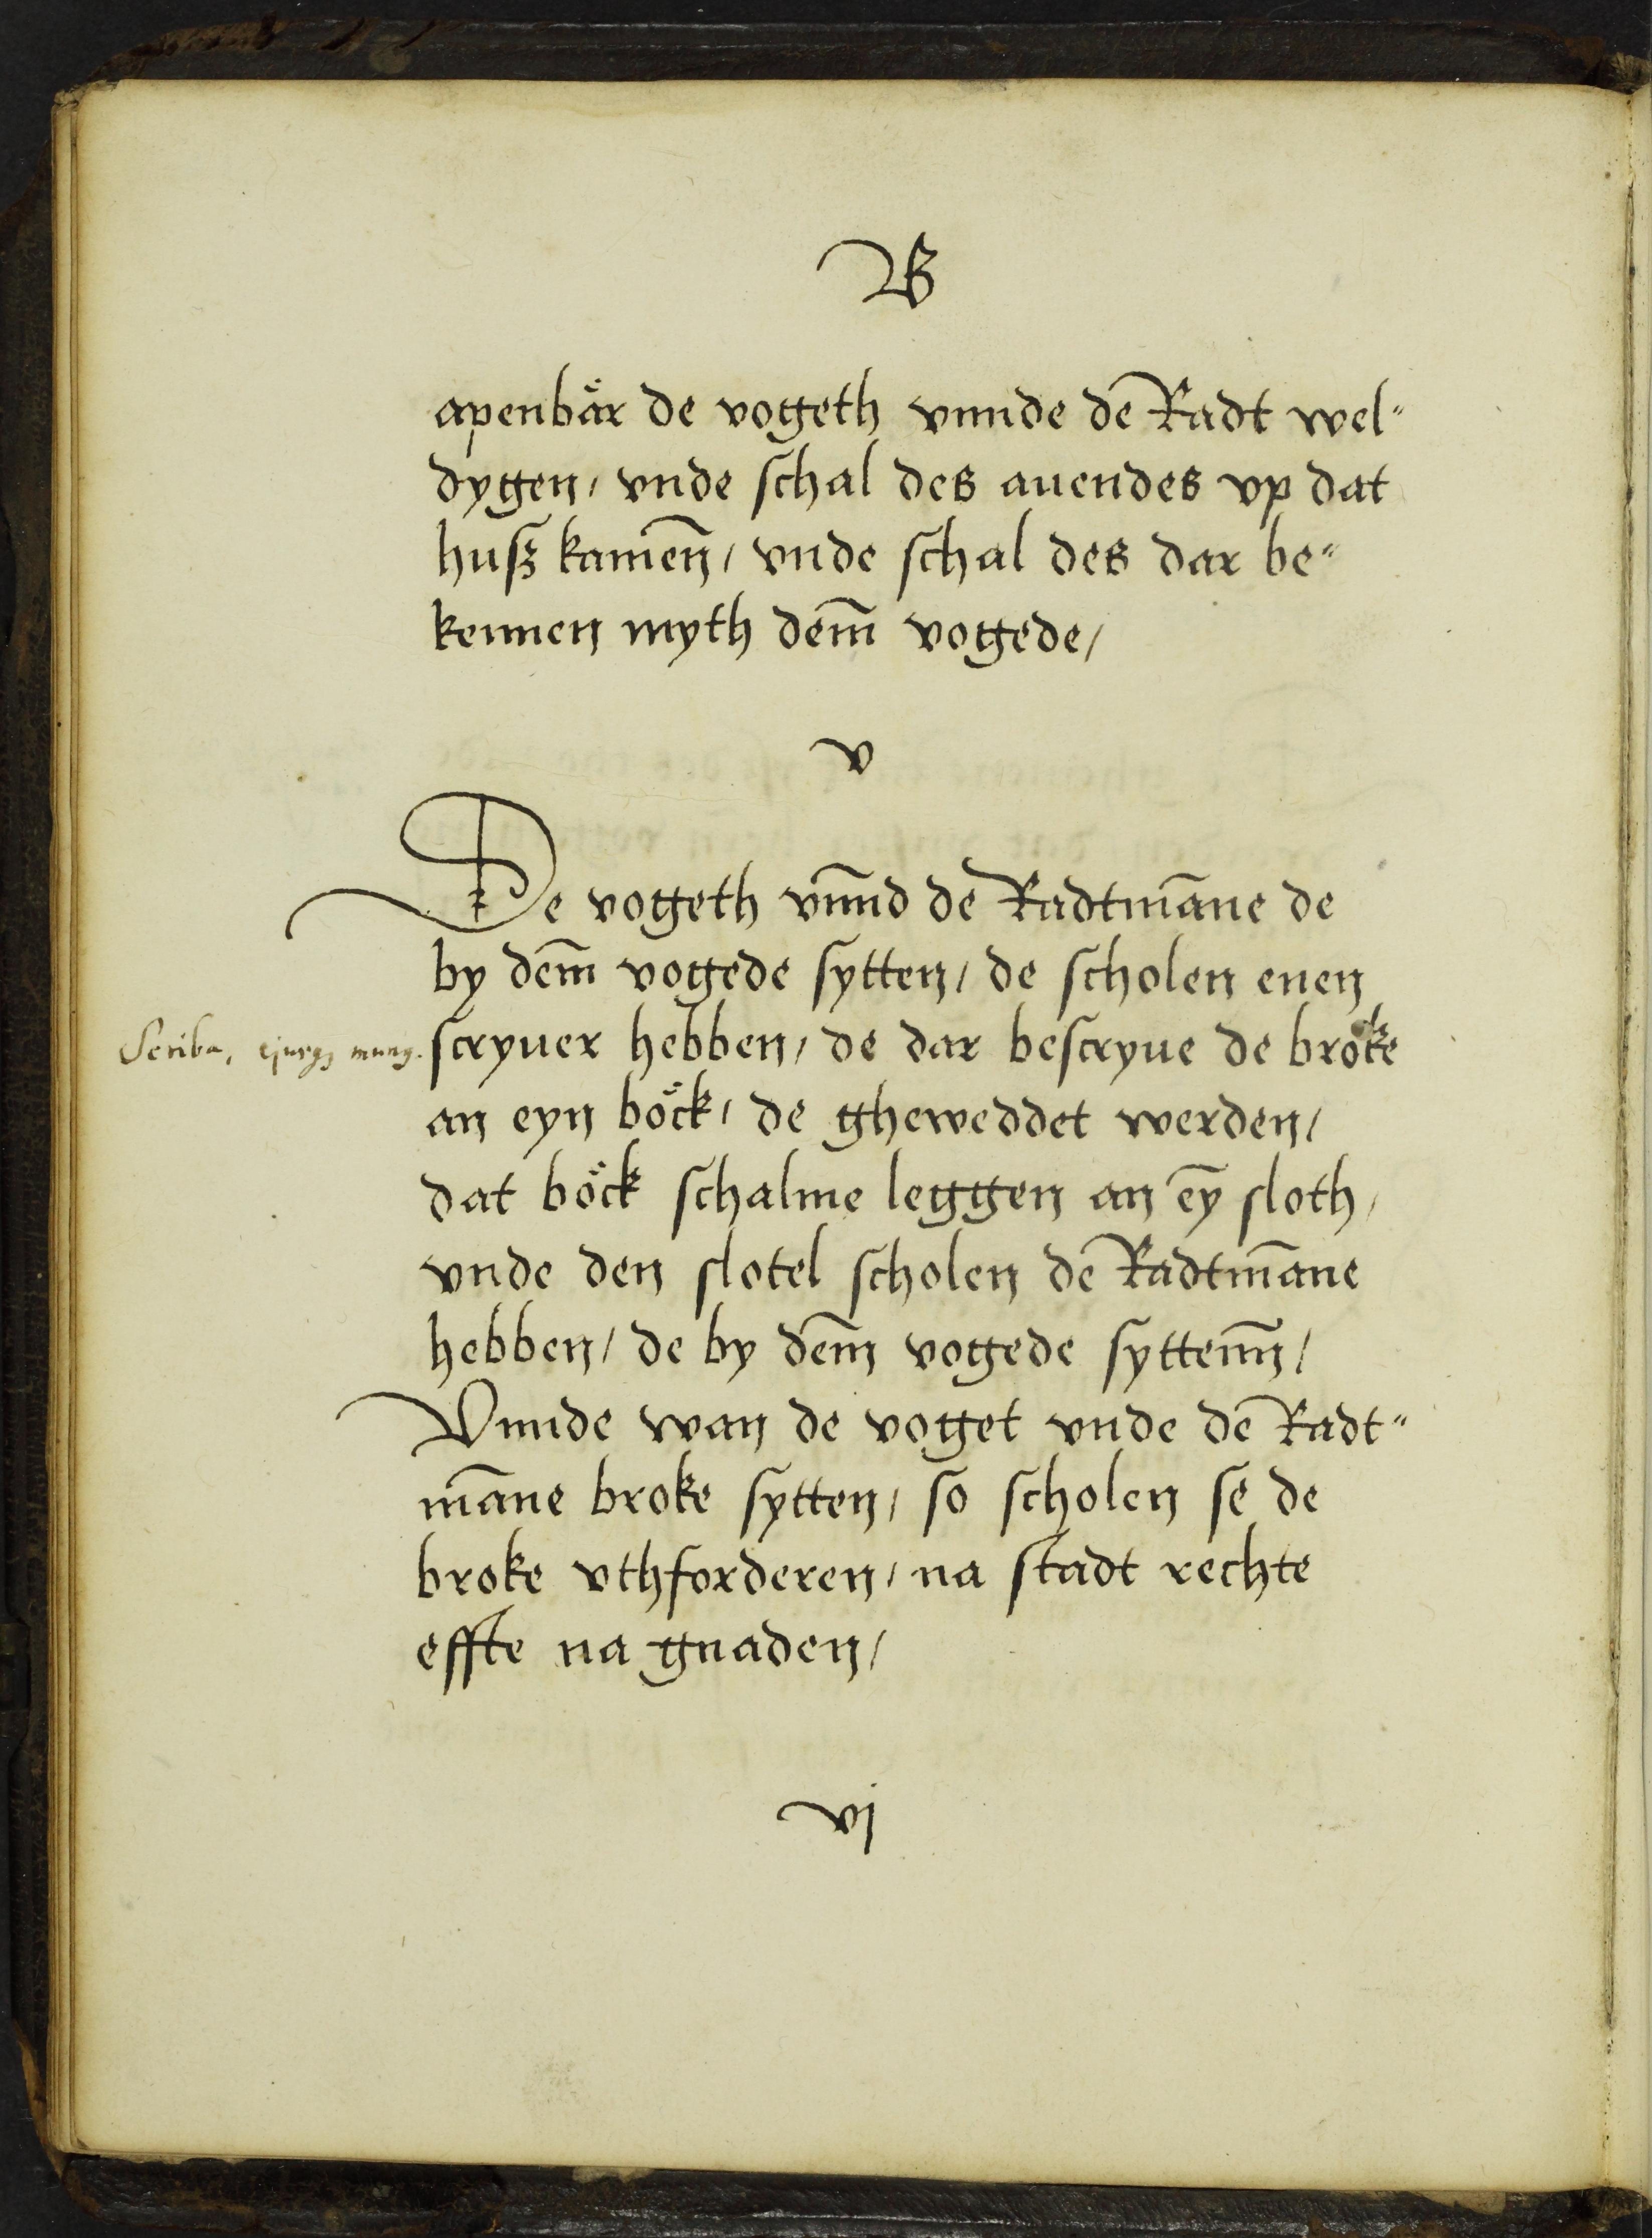 B
apenbär de vogeth vnnde de Radt wel"
dygen / vnde schal des auendes vp dat
husz kamen̄ / vnde schal des dar be"
kennen myth dem̄ vogede /
v
De vogeth vn̄nd de Radtmāne de
by dem̄ vogede sytten / de scholen enen
Scriba, ejusq; mung.
scryuer hebben / de dar bescryue de bröke
an eyn böck / de gheweddet werden /
dat böck schalme leggen an ēy sloth /
vnde den slotel scholen de Radtmāne
hebben / de by dem̄ vogede syttenn̄ /
Vnnde wan de voget vnde de Radt"
māne broke sytten / so scholen se de
broke vthforderen / na stadt rechte
effte na gnaden /
vj